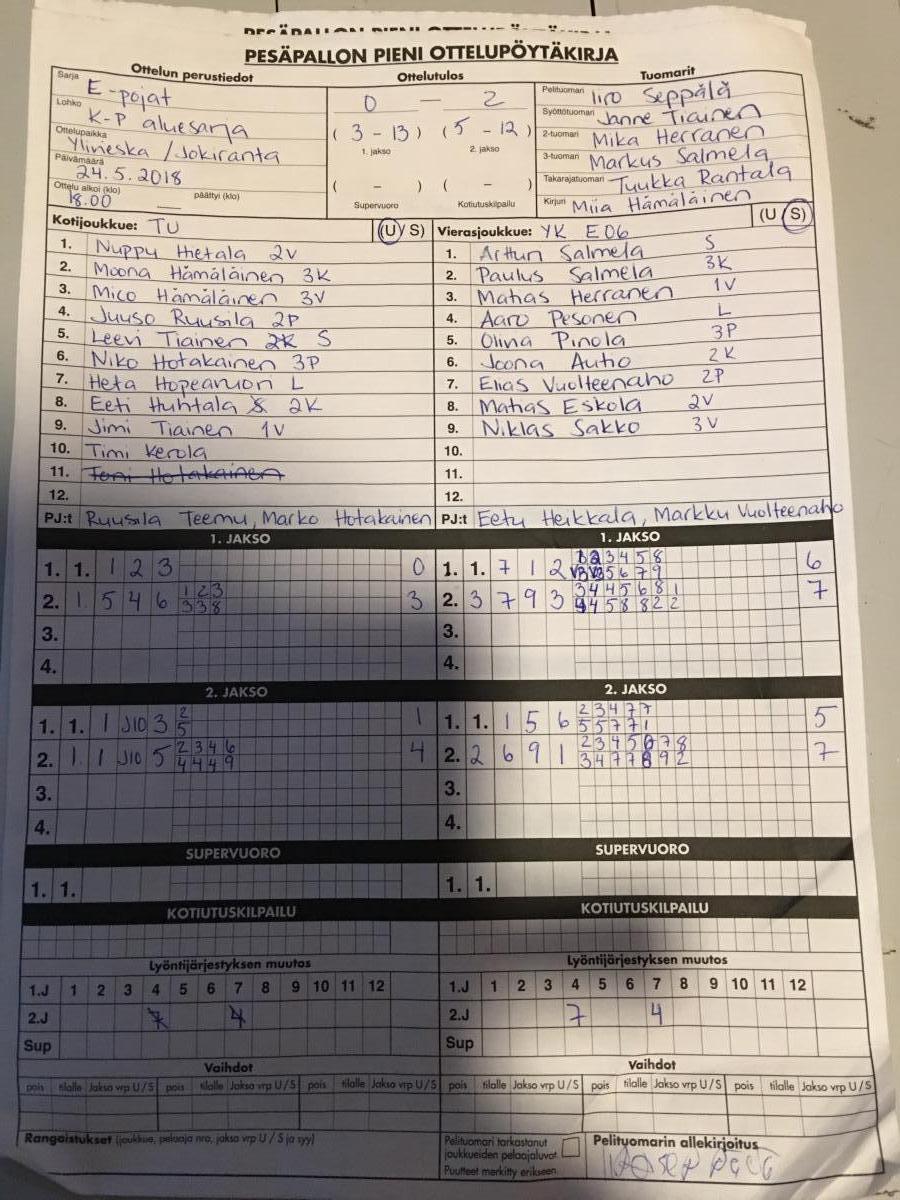 PESÄPALLON PIENI OTTELUPÖYTÄKIRJA
Ottelun perustiedot
Sarja E-pojat
Lohko K-P aluesarja
Ottelupaikka Ylivieska / Jokiranta
Päivämäärä 24.5.2018
Ottelu alkoi (klo) 18.00 päättyi (klo)
Ottelutulos
0 — 2
( 3 - 13 ) ( 5 - 12 )
1. jakso 2. jakso
( - ) ( - )
Supervuoro Kotiutuskilpailu
Tuomarit
Pelituomari Iiro Seppälä
Syöttötuomari Janne Tiainen
2-tuomari Mika Herranen
3-tuomari Markus Salmela
Takarajatuomari Tuukka Rantala
Kirjuri Miia Hämäläinen
Kotijoukkue: TU (U/S)
1. Nuppu Hietala 2V
2. Moona Hämäläinen 3K
3. Mico Hämäläinen 3V
4. Juuso Ruusila 2P
5. Leevi Tiainen 2K S
6. Niko Hotakainen 3P
7. Heta Hopeavuori L
8. Eeti Huhtala S 2K
9. Jimi Tiainen 1V
10. Timi Kerola
11. Toni Hotakainen
12.
PJ:t Ruusila Teemu, Marko Hotakainen
Vierasjoukkue: YK E06 (U/S)
1. Arttun Salmela S
2. Paulus Salmela 3K
3. Matias Herranen 1V
4. Aaro Pesonen L
5. Olina Pinola 3P
6. Joona Autio 2K
7. Elias Vuolteenaho 2P
8. Matias Eskola 2V
9. Niklas Sakko 3V
10.
11.
12.
PJ:t Eetu Heikkala, Markku Vuolteenaho
1. JAKSO
1. 1. 1 2 3 0
2. 1 5 4 6 1 2 3 3
3 3 8
3.
4.
1. JAKSO
1. 1. 7 1 2 3 4 5 8 6
5 6 7 9
2. 3 7 9 3 3 4 4 5 6 8 1 7
4 5 8 8 2 2
3.
4.
2. JAKSO
1. 1. 1 J10 3 2 1
5
2. 1 1 J10 5 2 3 4 6 4
4 4 4 9
3.
4.
2. JAKSO
1. 1. 1 5 6 2 3 4 7 7 5
5 5 7 7 1
2. 2 6 9 1 2 3 4 5 6 7 8 7
3 4 7 7 8 9 2
3.
4.
SUPERVUORO
1. 1.
SUPERVUORO
1. 1.
KOTIUTUSKILPAILU
KOTIUTUSKILPAILU
Lyöntijärjestyksen muutos
1.J 1 2 3 4 5 6 7 8 9 10 11 12
2.J 7 4
Sup
Lyöntijärjestyksen muutos
1.J 1 2 3 4 5 6 7 8 9 10 11 12
2.J 7 4
Sup
Vaihdot
pois tilalle Jakso vrp U/S pois tilalle Jakso vrp U/S pois tilalle Jakso vrp U/S
Vaihdot
pois tilalle Jakso vrp U/S pois tilalle Jakso vrp U/S pois tilalle Jakso vrp U/S
Rangaistukset (joukkue, pelaaja nro, jakso vrp U / S ja syy)
Pelituomari tarkastanut
joukkueiden pelaajaluvat.
Puutteet merkitty erikseen.
Pelituomarin allekirjoitus